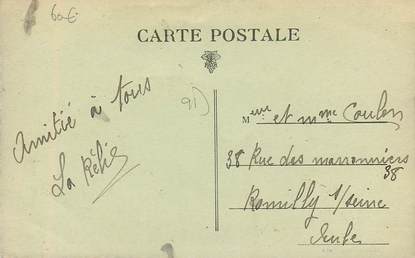 60€
CARTE POSTALE
91)
Amitié à tous
La
Meur et mme Coulon
38 Rue des marronniers
38
Romilly s/seine
Aube